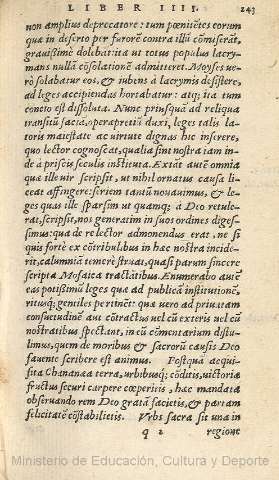 LIBER IIII. 243
non amplius deprecatore: tum pœnitẽtes eorum
quæ in deserto per furorẽ contra illũ cõmiserãt,
grauissimè dolebãt: ita ut totus populus lacry-
mans nullã cõsolationẽ admitteret. Moyses ue-
rò solabatur eos, & iubens à lacrymis desistere,
ad leges accipiendas hortabatur: atq; ita tum
concio est dissoluta. Nunc priusquã ad reliqua
transitũ faciã, operæpretiũ duxi, leges talis la-
toris maiestate ac uirtute dignas hic inserere,
quo lector cognoscat, qualia sint nostra iam in-
de à priscis seculis instituta. Extãt autẽ omnia
quæ ille uir scripsit, ut nihil ornatus causa li-
ceat affingere: seriem tantũ nouauimus, & le-
ges quas ille sparsim ut quamq; à Deo retule-
rat, scripsit, nos generatim in suos ordines digess-
imus: qua de re lector admonendus erat, ne si
quis fortè ex cõtribulibus in hæc nostra incide-
rit, calumniã temerè struat, quasi parum syncere
scripta Mosaica tractãtibus. Enumerabo autẽ
eas potissimũ leges quæ ad publicã institutionẽ,
ritusq; gentiles pertinẽt: quæ uero ad priuatam
consuetudinẽ aut cõtractus uel cũ exteris uel cũ
nostratibus spectãt, in eũ cõmentarium distu-
limus, quem de moribus & sacrorũ causis Deo
fauente scribere est animus. Postquã acqui-
sita Chananæa terra, urbibusq; cõditis, uictoriæ
fructus securi carpere cœperitis, hæc mandata
obseruando rem Deo gratã facietis, & partam
felicitatẽ cõstabilietis. Vrbs sacra sit una in
q 2 regione
Ministerio de Educación, Cultura y Deporte